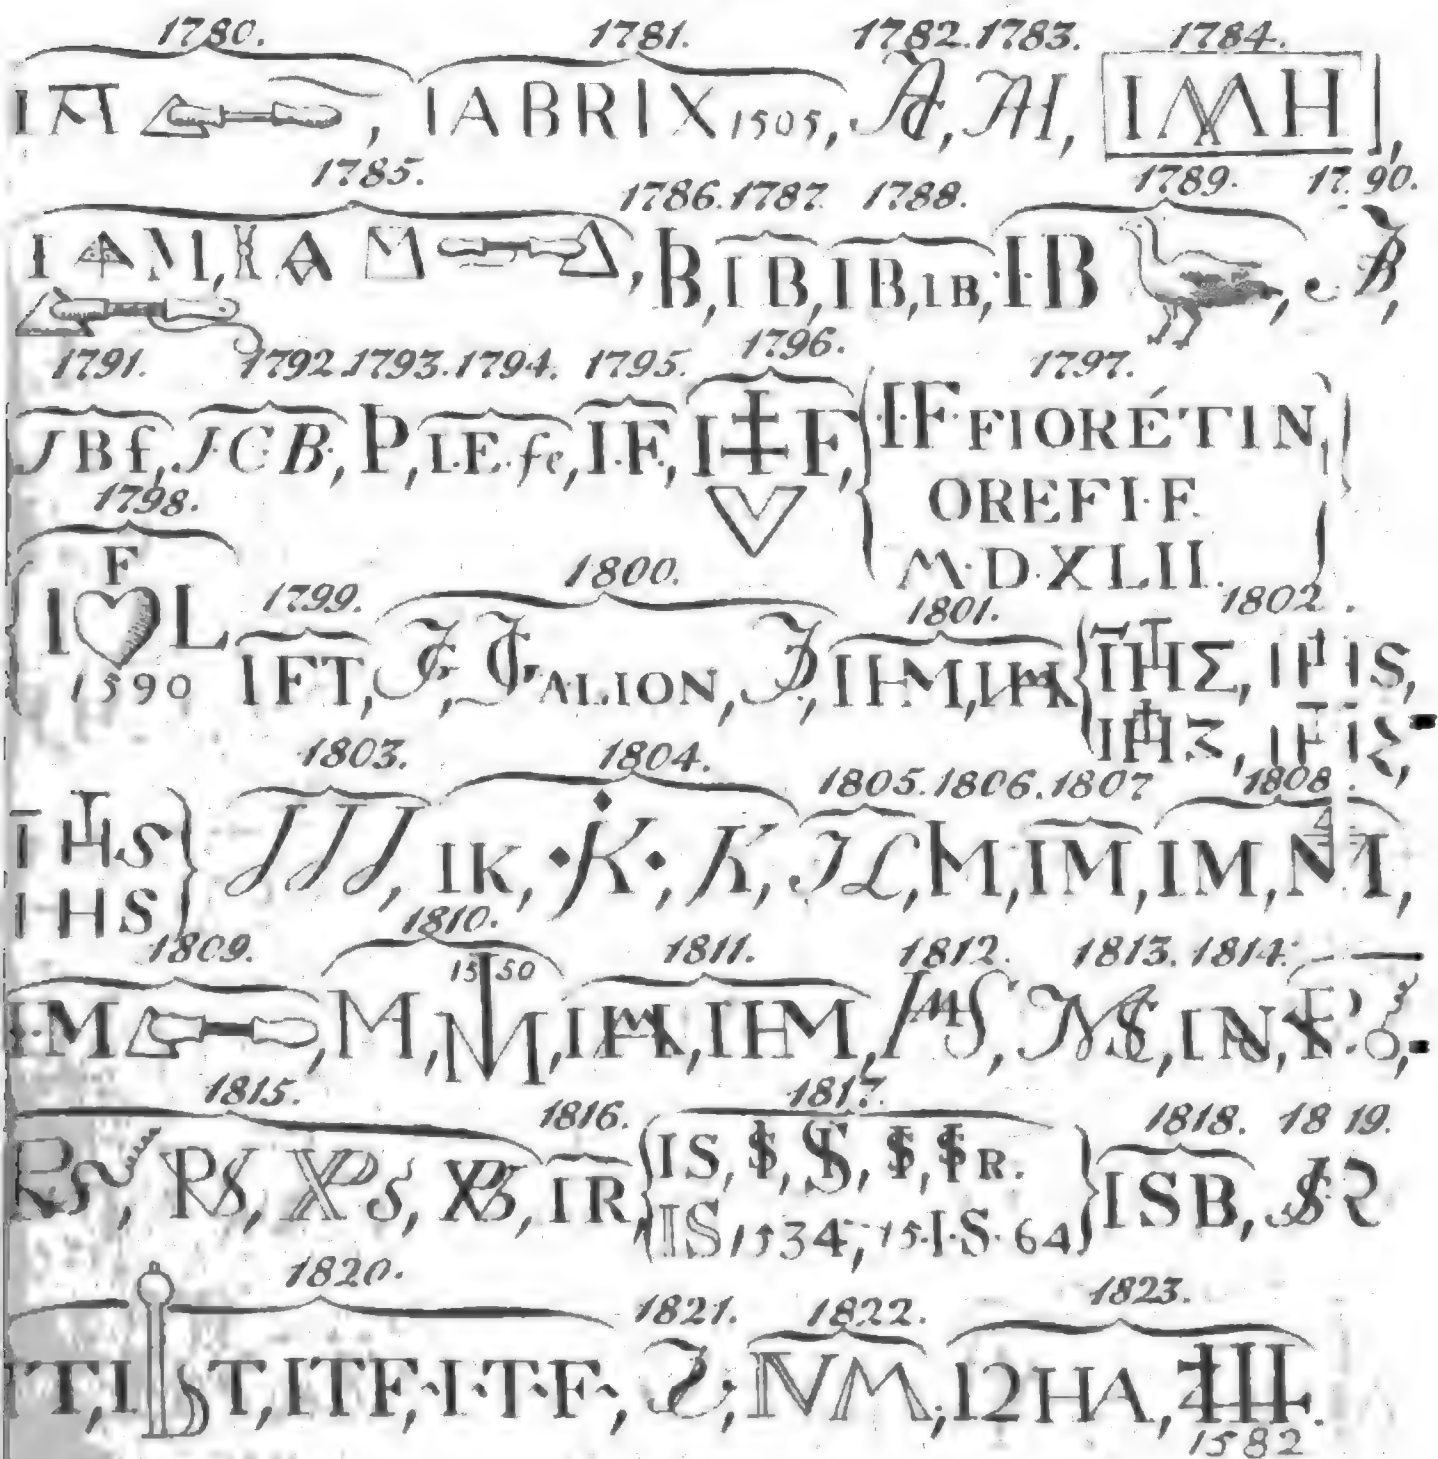 1780. 1781. 1782. 1783. 1784.
IA, IABRIX 1505, A, AH, IMH,
1785. 1786. 1787. 1788. 1789. 1790.
IAM, IAM, B, IB, IB, IB, I·B, JB,
1791. 1792. 1793. 1794. 1795. 1796. 1797.
JBf, J·C·B·, P, I·E·fe, I·F·, I F, ·I·F· FIORÉTIN,
OREFI·F.
M·D·XLII.
1798. 1799. 1800. 1801. 1802.
F
I L
1590
IFT, JG, JGALION, J, IHM, IHM, IHΣ, IHIS,
IHΣ, IHIΣ,
1803. 1804. 1805. 1806. 1807 1808.
IHS
IHS
JJJ, IK, ·K·, K, JL, M, IM, IM, NI,
1809. 1810. 1811. 1812. 1813. 1814.
I·M, M, 1550 M, IHM, IHM, IMS, IN,
1815. 1816. 1817. 1818. 1819.
RS, RS, XPS, IR, IS, $, $, $, $R. ISB,
IS 1534, 15·I·S·64
1820. 1821. 1822. 1823.
IT, IST, ITF, ·I·T·F·, IVM, 12HA,
1582